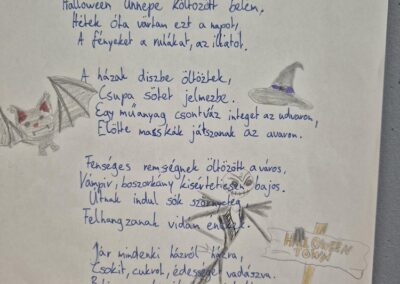 Halloween Ünnepe költözött belém,
Hetek óta vártam ezt a napot,
A fényeket a ruhákat, az illatot.
A házak díszbe öltöztek,
Csupa sötét jelmezbe.
Egy műanyag csontváz integet az udvaron,
Előtte masskák játszanak az avaron.
Fenséges rémségnek öltözött a város,
Vámpír, boszorkány kísértetiesen bájos.
Útnak indul sok szörnyeteg
Felhangzanak vidám énekek.
HALLOWEEN
TOWN
Jár mindenki házról házra,
Csokit, cukrot, édességet vadászva.